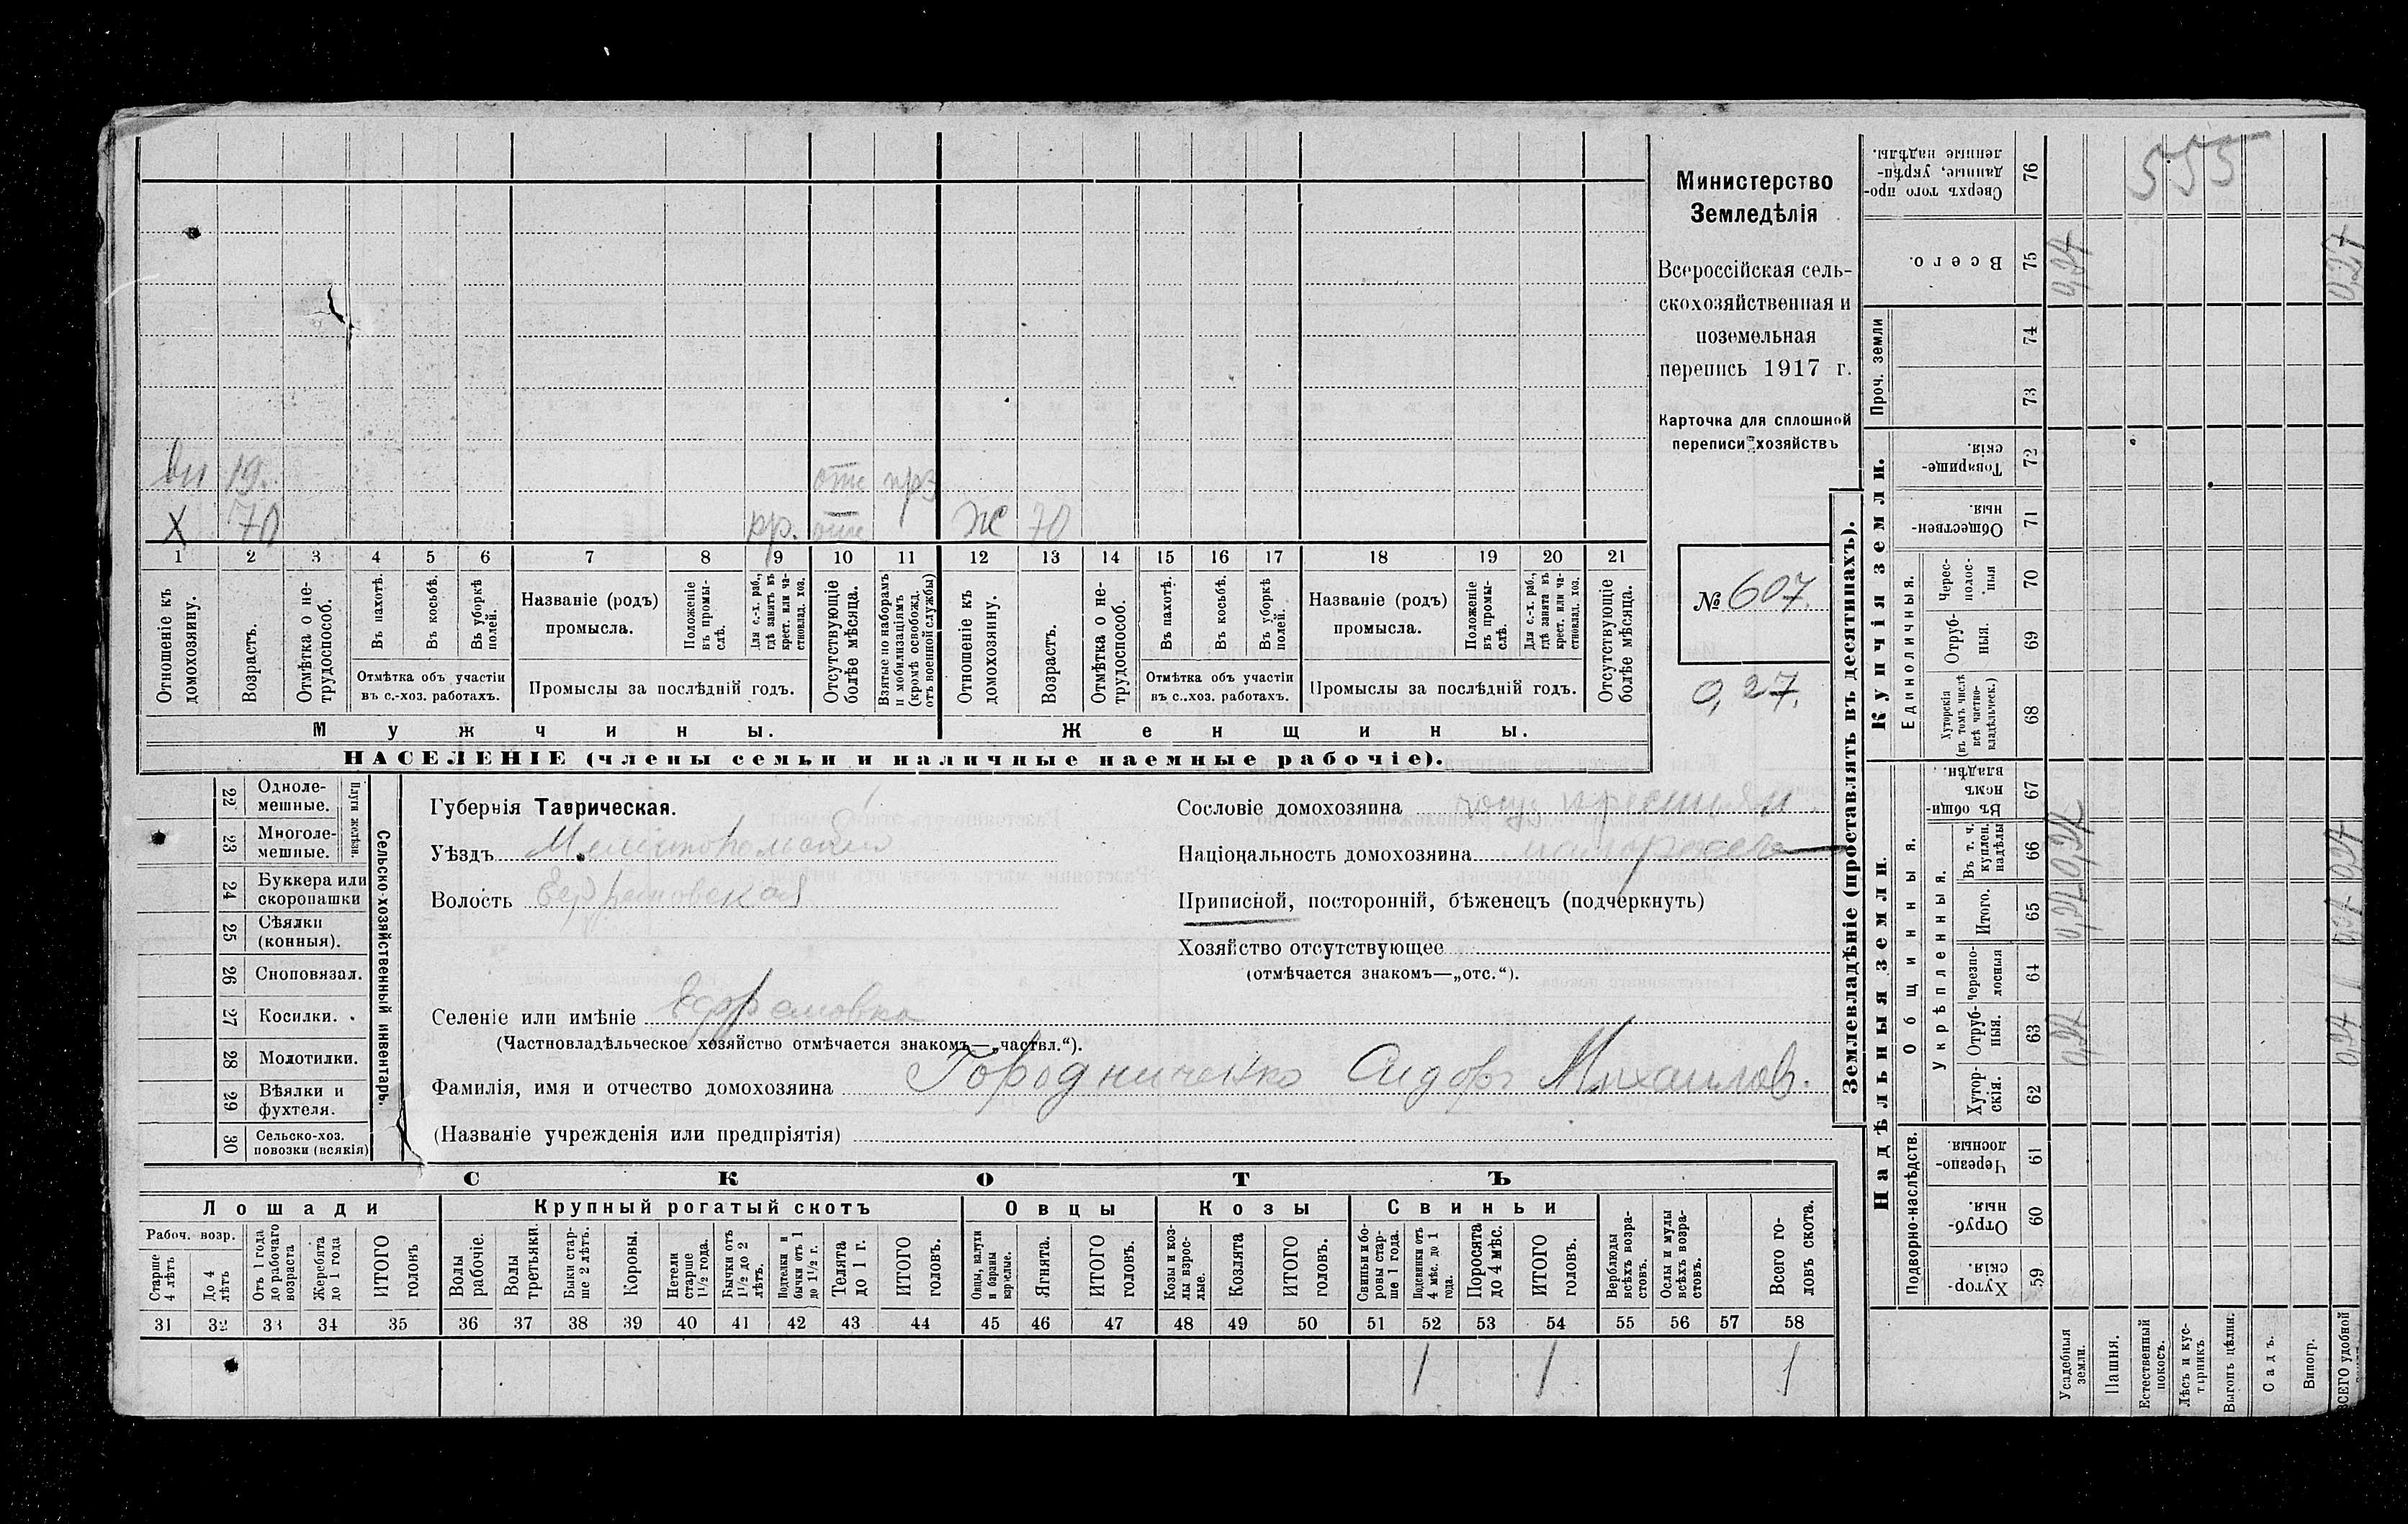 вн 19. отс
Х 70 рр. отс Ж 70
1 2 3 4 5 6 7 8 9 10 11 12 13 14 15 16 17 18 19 20 21
Отношеніе къ домохозяину.
Возрастъ.
Отмѣтка о не-трудоспособ.
Въ пахотѣ.
Въ косьбѣ.
Въ уборкѣ полей.
Отмѣтка объ участіи
въ с.-хоз. работахъ.
Названіе (родъ)
промысла.
Положеніе въ промы-слѣ.
Для с.-х. раб., гдѣ занятъ въ крест. или ча-стновлад. хоз.
Промыслы за послѣдній годъ.
Отсутствующіе болѣе мѣсяца.
Взятые по наборамъ и мобилизаціямъ (кромѣ освобожд. отъ военной службы)
Отношеніе къ домохозяину.
Возрастъ.
Отмѣтка о не-трудоспособ.
Въ пахотѣ.
Въ косьбѣ.
Въ уборкѣ полей.
Отмѣтка объ участіи
въ с.-хоз. работахъ.
Названіе (родъ)
промысла.
Положеніе въ промы-слѣ.
Для с.-х. раб., гдѣ занята въ крест. или ча-стновлад. хоз.
Промыслы за послѣдній годъ.
Отсутствующіе болѣе мѣсяца.
Мужчины. Женщины.
НАСЕЛЕНІЕ (члены семьи и наличные наемные рабочіе).
Министерство
Земледѣлія
Всероссійская сель-
скохозяйственная и
поземельная
перепись 1917 г.
Карточка для сплошной
переписи хозяйствъ
№ 607.
0,27.
22 Одноле-
мешные.
23 Многоле-
мешные.
24 Буккера или
скоропашки
25 Сѣялки
(конныя).
26 Сноповязал.
27 Косилки.
28 Молотилки.
29 Вѣялки и
фухтеля.
30 Сельско-хоз.
повозки (всякія)
Сельско-хозяйственный инвентарь.
Губернія Таврическая.
Уѣздъ Мелитопольскій
Волость Ефремовская
Селеніе или имѣніе Ефремовка
(Частновладѣльческое хозяйство отмѣчается знакомъ—„частвл.“).
Фамилія, имя и отчество домохозяина Городниченко Сидоръ Михаилов.
(Названіе учрежденія или предпріятія)
Сословіе домохозяина
Національность домохозяина
Приписной, посторонній, бѣженецъ (подчеркнуть)
Хозяйство отсутствующее
(отмѣчается знакомъ—„отс.“).
СКОТЪ
Лошади Крупный рогатый скотъ Овцы Козы Свиньи
Рабоч. возр.
Старше 4 лѣтъ
До 4 лѣтъ
Отъ 1 года до рабочаго возраста
Жеребята до 1 года
ИТОГО головъ
Волы рабочіе.
Волы третьяки.
Быки стар-ше 2 лѣтъ.
Коровы.
Нетели старше 1½ года.
Бычки отъ 1½ до 2 лѣтъ.
Подтелки и бычки отъ 1 до 1½ г.
Телята до 1 г.
ИТОГО головъ.
Овцы, валухи и бараны взрослые.
Ягнята.
ИТОГО головъ.
Козы и коз-лы взрос-лые.
Козлята
ИТОГО головъ.
Свиньи и бо-ровы стар-ше 1 года.
Подсвинки отъ 4 мѣс. до 1 года.
Поросята до 4 мѣс.
ИТОГО головъ.
Верблюды всѣхъ возра-стовъ.
Ослы и мулы всѣхъ возра-стовъ.
Всего го-ловъ скота.
31 32 33 34 35 36 37 38 39 40 41 42 43 44 45 46 47 48 49 50 51 52 53 54 55 56 57 58
1 1 1
Землевладѣніе (проставлять въ десятинахъ).
Надѣльныя земли. Купчія земли. Проч. земли
Подворно-наслѣдств.
Общинныя.
Укрѣпленныя.
Единоличныя.
Сверхъ того про-данные, укрѣп-ленные надѣлы. 76
Всего. 75
74
73
Товарище-скія. 72
Обществен-ныя. 71
Черес-полос-ныя 70
Отруб-ныя. 69
Хуторскія (въ томъ числѣ всѣ частно-владѣльческ.) 68
Въ общи-номъ владѣн. 67
Въ т. ч. куплен. надѣлы 66
Итого. 65
Черезпо-лосныя 64
Отруб-ныя. 63
Хутор-скія. 62
Черезпо-лосныя 61
Отруб-ныя. 60
Хутор-скія. 59
555
0,27
Усадебныя земли.
Пашня.
Естественный покосъ.
Лѣсъ и кус-тарникъ
Выгонъ цѣлин.
Садъ.
Виногр.
ВСЕГО удобной